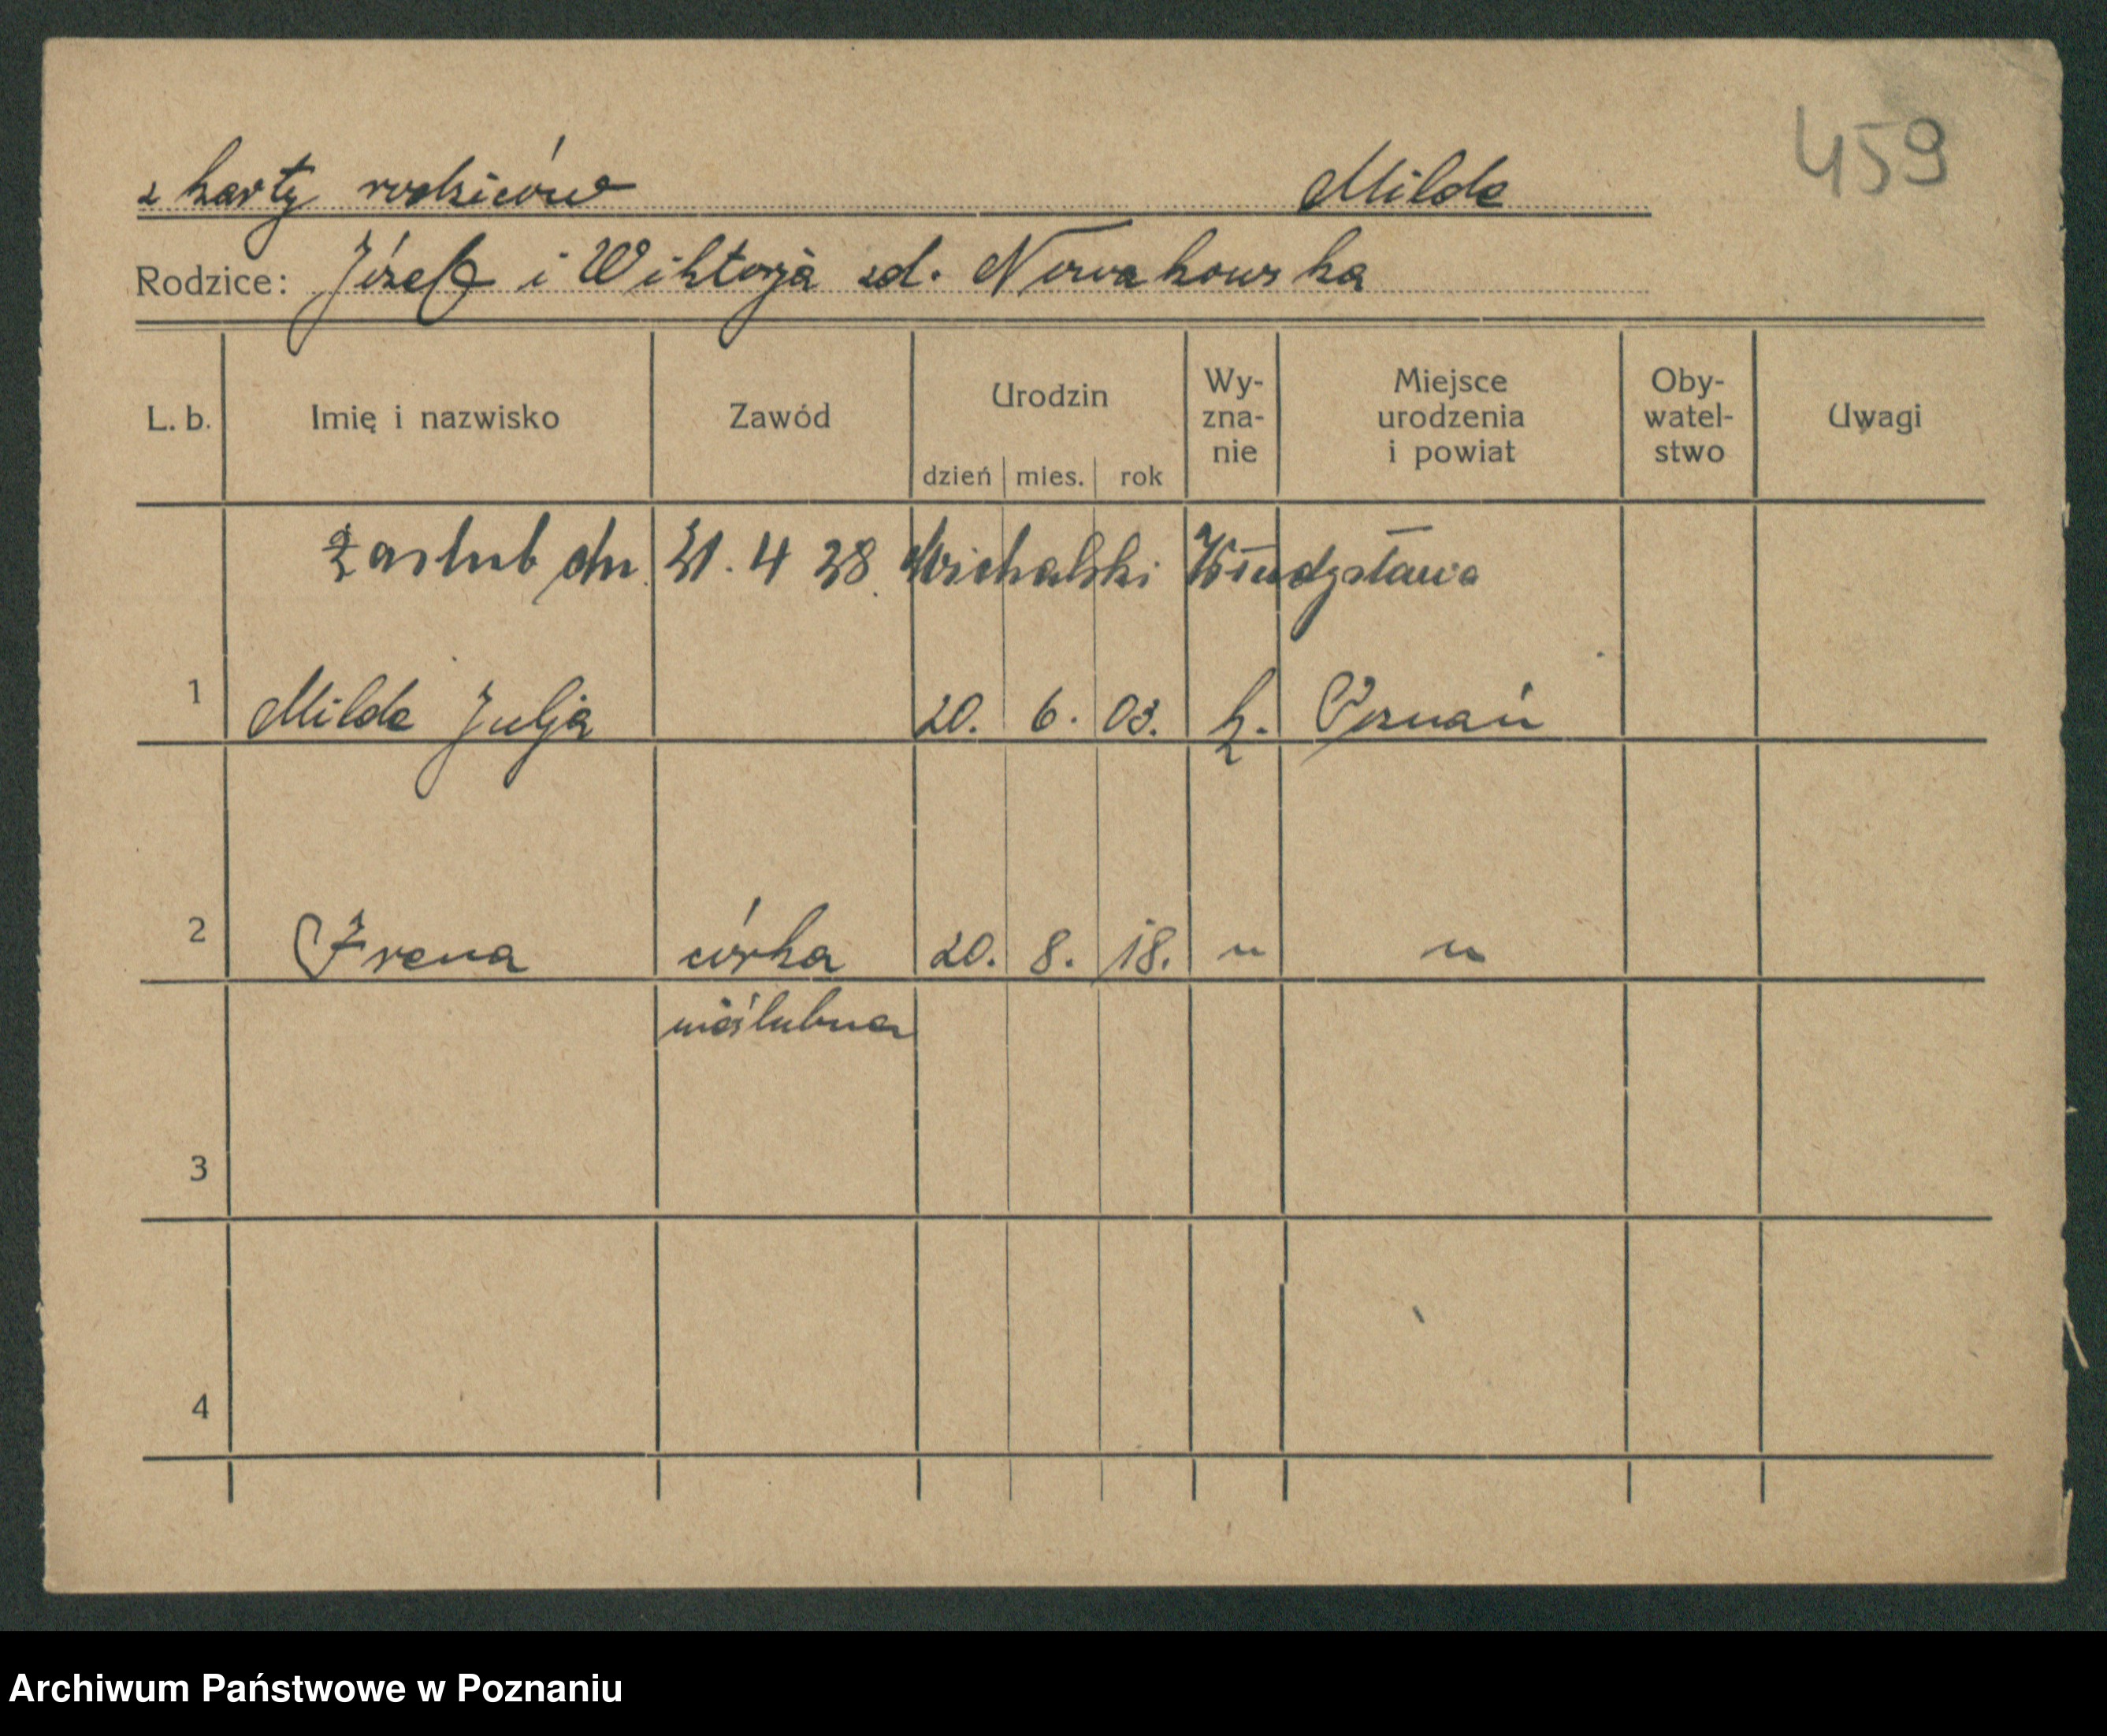 459
z karty rodziców Milda
Rodzice: Józef i Wiktorja zd. Nowakowska
L. b. Imię i nazwisko Zawód Urodzin dzień mies. rok Wy-zna-nie Miejsce urodzenia i powiat Oby-watel-stwo Uwagi
Zaślub dn. 4 38. Michalski Władysława
1 Milda Julja 20. 6. 03. k. Poznań
2 Irena córka 20. 8. 18. " "
nieślubna
3
4
Archiwum Państwowe w Poznaniu